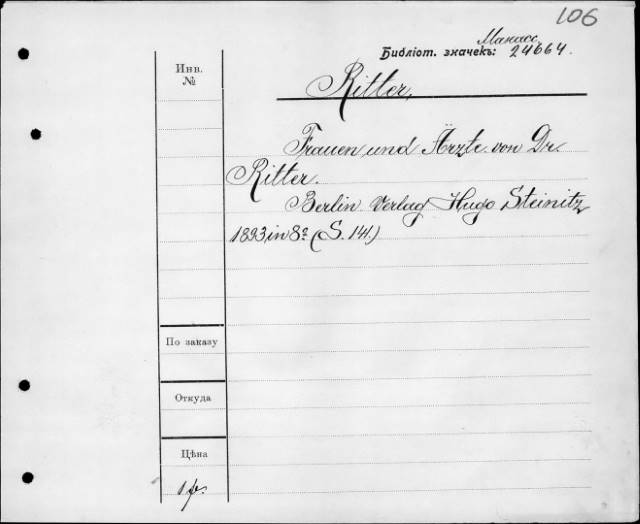 106
Манасс.
Библіот. значекъ: 24664.
Инв.
№
Ritter,
Frauen und Ärzte von Dr.
Ritter.
Berlin Verlag Hugo Steinitz
1893, in 8º (S. 141.)
По заказу
Откуда
Цѣна
1 р.